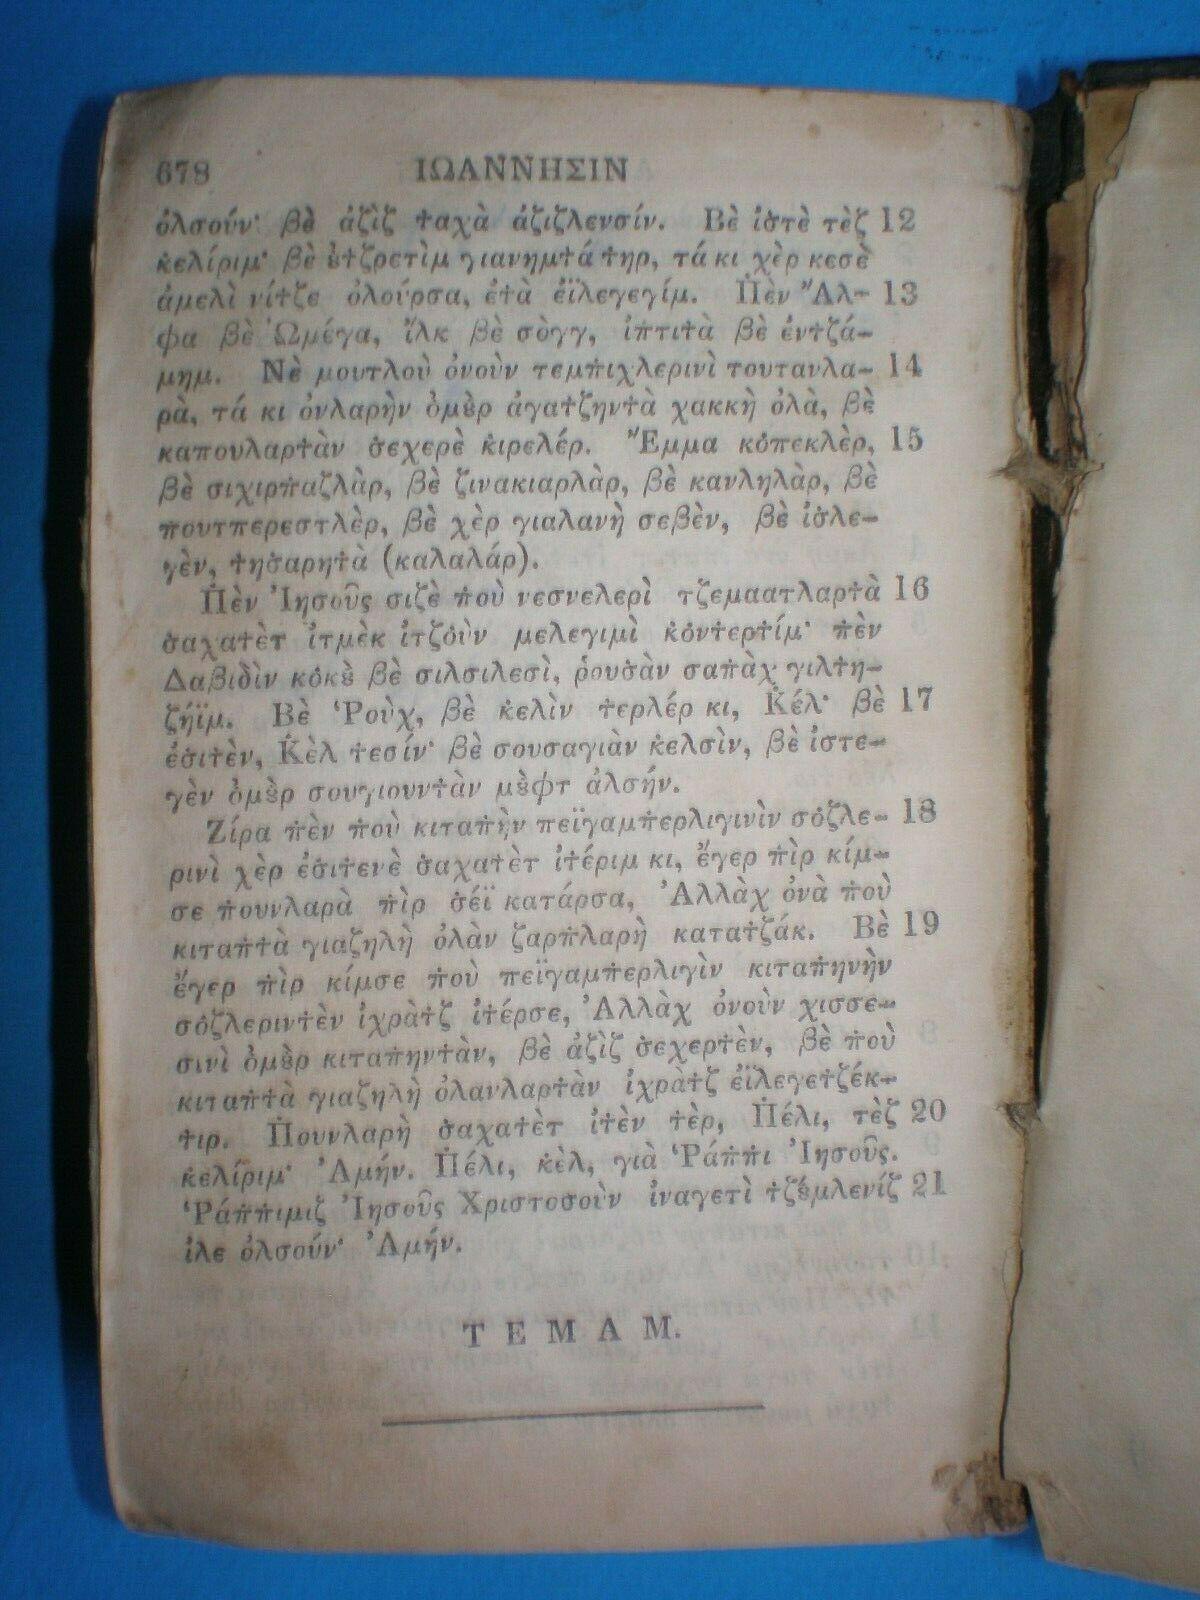 678 ΙΩΑΝΝΗΣΙΝ
ὀλσούν· βὲ ἀζὶζ τ̇αχὰ ἀζιζλενσίν. Βὲ ἰσ̇τὲ τὲζ 12
κ̇ελίριμ· βὲ ἐτ̇ζρετὶμ γιανημτ̇ά τ̇ηρ, τά κι χὲρ κεσὲ
ἀμελὶ νίτ̇ζε ὀλούρσα, ἐτ̇ὰ ἐϊλεγεγίμ. Π̇ὲν Ἄλ- 13
φα βὲ Ὠμέγα, ἴλκ βὲ σὸγγ, ἰπ̇τιτ̇ὰ βὲ ἐντ̇ζά-
μημ. Νὲ μουτλοὺ ὀνοὺν τεμπ̇ιχλερινὶ τουτανλα- 14
ρὰ, τά κι ὀνλαρὴν ὀμὲρ ἀγατ̇ζηντ̇ὰ χακκὴ ὀλὰ, βὲ
καπουλαρτ̇ὰν σ̇εχερὲ κ̇ιρελέρ. Ἔμμα κὀπεκλὲρ, 15
βὲ σιχιρπ̇αζλὰρ, βὲ ζινακιαρλὰρ, βὲ κανληλὰρ, βὲ
π̇ουτπερεστλὲρ, βὲ χὲρ γιαλανὴ σεβὲν, βὲ ἰσ̇λε-
γὲν, τ̇ησ̇αρητ̇ὰ (καλαλάρ).
Π̇ὲν Ἰησοῦς σιζὲ π̇οὺ νεσνελερὶ τζεμαατλαρτ̇ὰ 16
σ̇αχατ̇ὲτ ἰτμὲκ ἰτζὀὺν μελεγιμὶ κ̇ὀντ̇ερτ̇ίμ· π̇ὲν
Δαβιδὶν κὀκὲ βὲ σιλσιλεσὶ, ῥουσ̇ὰν σαπ̇ὰχ γιλτ̇η-
ζήϊμ. Βὲ Ῥοὺχ, βὲ κ̇ελὶν τ̇ερλέρ κι, Κ̇έλ· βὲ 17
ἐσ̇ιτ̇ὲν, Κ̇ὲλ τ̇εσίν· βὲ σουσαγιὰν κ̇ελσὶν, βὲ ἰστε-
γὲν ὀμὲρ σουγιουντ̇ὰν μὲφτ ἀλσήν.
Ζίρα π̇ὲν π̇οὺ κιταπ̇ὴν πεϊγαμπ̇ερλιγινὶν σὀζλε- 18
ρινὶ χὲρ ἐσ̇ιτ̇ενὲ σ̇αχατ̇ὲτ ἰτ̇έριμ κι, ἔγερ π̇ὶρ κίμ-
σε π̇ουνλαρὰ π̇ὶρ σ̇έϊ κατάρσα, Ἀλλὰχ ὀνὰ π̇οὺ
κιταπ̇τ̇ὰ γιαζηλὴ ὀλὰν ζαρπ̇λαρὴ κατατ̇ζάκ. Βὲ 19
ἔγερ π̇ὶρ κίμσε π̇οὺ πεϊγαμπ̇ερλιγὶν κιταπ̇ηνὴν
σὀζλεριντ̇ὲν ἰχρὰτ̇ζ ἰτ̇έρσε, Ἀλλὰχ ὀνοὺν χισσε-
σινὶ ὀμὲρ κιταπ̇ηντ̇ὰν, βὲ ἀζὶζ σ̇εχερτ̇ὲν, βὲ π̇οὺ
κιταπ̇τ̇ὰ γιαζηλὴ ὀλανλαρτ̇ὰν ἰχρὰτ̇ζ ἐϊλεγετ̇ζέκ-
τ̇ιρ. Π̇ουνλαρὴ σ̇αχατ̇ὲτ ἰτ̇ὲν τ̇ὲρ, Π̇έλι, τὲζ 20
κ̇ελίριμ· Ἀμήν. Π̇έλι, κ̇ὲλ, γιὰ Ῥάπ̇π̇ι Ἰησοῦς.
Ῥάπ̇π̇ιμιζ Ἰησοῦς Χριστοσοὺν ἰναγετὶ τ̇ζέμλενίζ 21
ἰλε ὀλσούν· Ἀμήν.
ΤΕΜΑΜ.